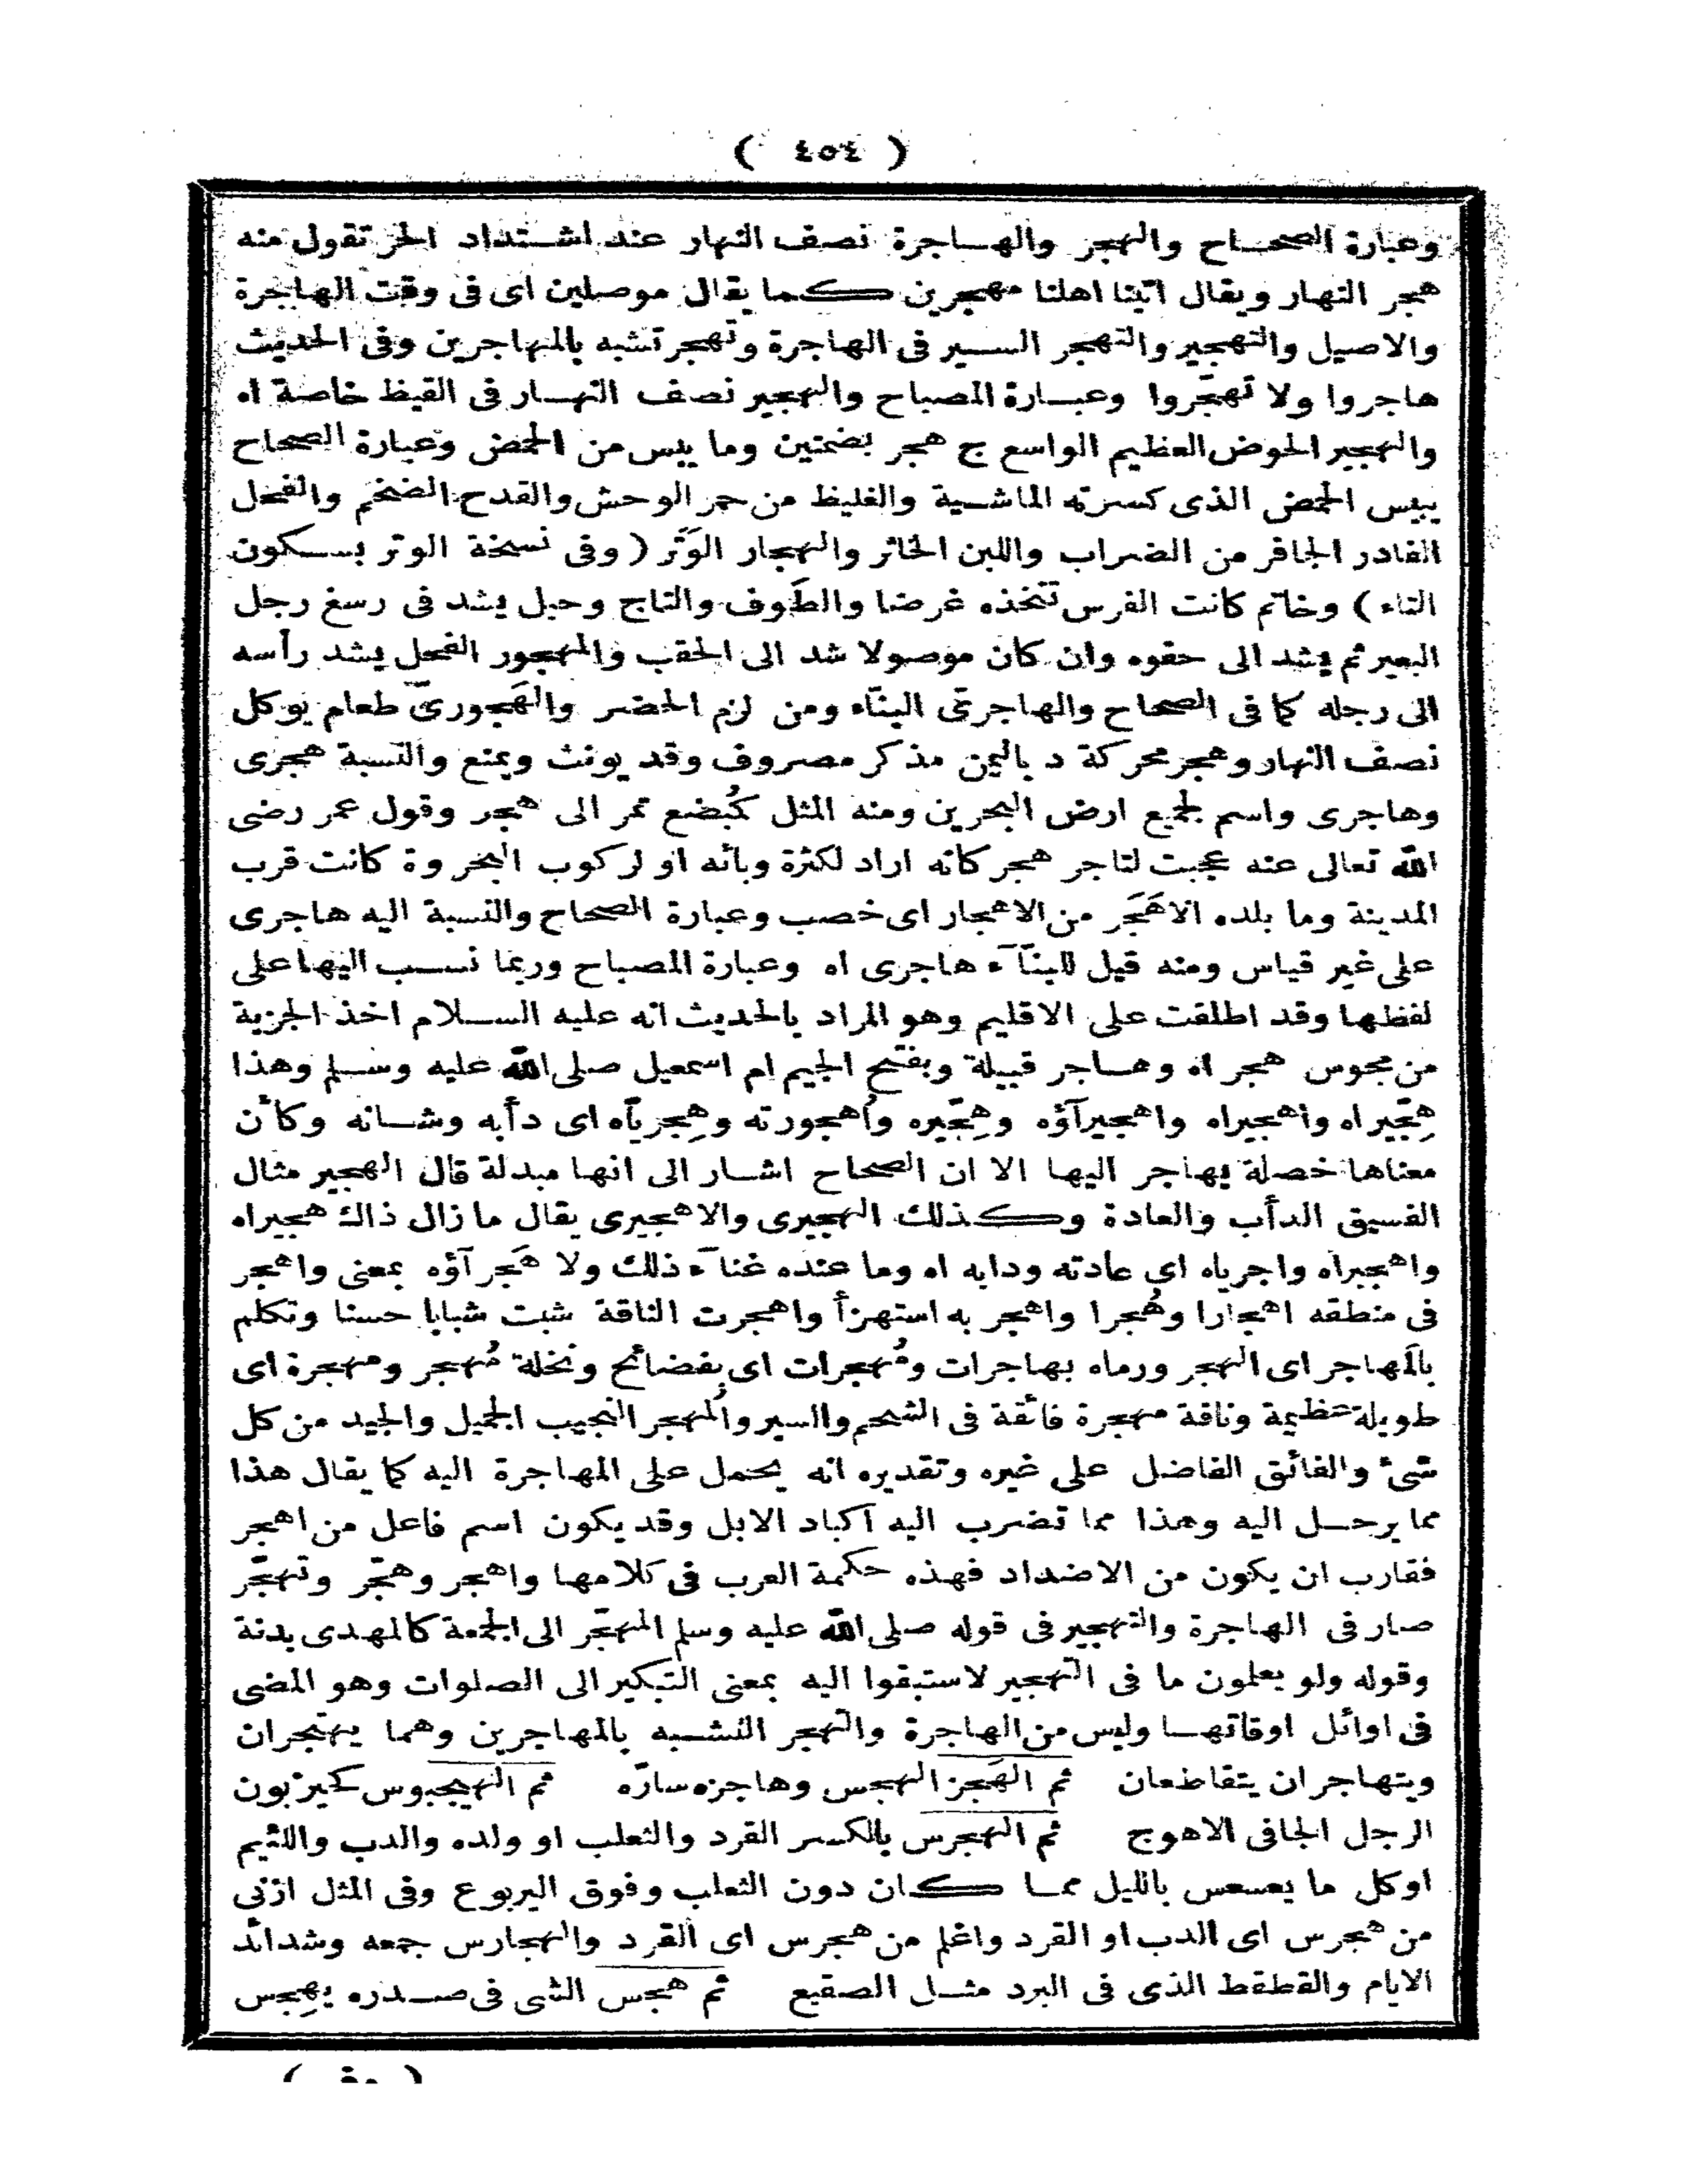 ( ٤٥٤ )
وعبارة الصحاح والهجر والهاجرة نصف النهار عند اشتداد الحر تقول منه
هجر النهار ويقال اتينا اهلنا مهجرين كما يقال موصلين اى فى وقت الهاجرة
والاصيل والتهجير والتهجر السير فى الهاجرة وتهجر تشبه بالمهاجرين وفى الحديث
هاجروا ولا تهجّروا وعبارة المصباح والهجير نصف النهار فى القيظ خاصة اه
والهجير الحوض العظيم الواسع ج هجر بضمتين وما يبس من الحمض وعبارة الصحاح
يبيس الحمض الذى كسرته الماشية والغليظ من حمر الوحش والقدح الضخم والفحل
الفادر الجافر من الضراب واللبن الخاثر والهجار الوَتَر ( وفى نسخة الوتر بسكون
التاء ) وخاتم كانت الفرس تتخذه غرضا والطَوف والتاج وحبل يشد فى رسغ رجل
البعير ثم يشد الى حقوه وان كان موصولا شد الى الحقب والمهجور الفحل يشد رأسه
الى رجله كما فى الصحاح والهاجرىّ البنّاء ومن لزم الحضر والهَجورىّ طعام يوكل
نصف النهار وهجر محركة د باليمن مذكر مصروف وقد يونث ويمنع والنسبة هجرى
وهاجرى واسم لجميع ارض البحرين ومنه المثل كمُبضع تمر الى هجر وقول عمر رضى
الله تعالى عنه عجبت لتاجر هجر كانه اراد لكثرة وبائه او لركوب البحر وة كانت قرب
المدينة وما بلده الاهَجَر من الاهجار اى خصب وعبارة الصحاح والنسبة اليه هاجرى
على غير قياس ومنه قيل للبنّآء هاجرى اه وعبارة المصباح وربما نسب اليها على
لفظها وقد اطلقت على الاقليم وهو المراد بالحديث انه عليه السلام اخذ الجزية
من مجوس هجر اه وهاجر قبيلة وبفتح الجيم ام اسمعيل صلى الله عليه وسلم وهذا
هِجّيراه واهجيراه واهجيرآؤه وهِجّيره واُهجورته وهِجريّاه اى دأبه وشانه وكأن
معناها خصلة يهاجر اليها الا ان الصحاح اشار الى انها مبدلة قال الهجير مثال
الفسيق الدأب والعادة وكذلك الهجيرى والاهجيرى يقال ما زال ذاك هجيراه
واهجيراه واجرياه اى عادته ودابه اه وما عنده غنآء ذلك ولا هَجرآؤه بمعنى واهجر
فى منطقه اهجارا وهُجرا واهجر به استهزأ واهجرت الناقة شبت شبابا حسنا وتكلم
بالمَهاجر اى الهجر ورماه بهاجرات ومُهجرات اى بفضائح ونخلة مُهجر ومهجرة اى
طويلة عظيمة وناقة مهجرة فائقة فى الشحم والسير والمُهجر النجيب الجميل والجيد من كل
شئ والفائق الفاضل على غيره وتقديره انه يحمل على المهاجرة اليه كما يقال هذا
مما يرحل اليه وهذا مما تضرب اليه اكباد الابل وقد يكون اسم فاعل من اهجر
فقارب ان يكون من الاضداد فهذه حكمة العرب فى كلامها واهجر وهجّر وتهجّر
صار فى الهاجرة والتهجير فى قوله صلى الله عليه وسلم المهجّر الى الجمعة كالمهدى بدنة
وقوله ولو يعلمون ما فى التهجير لاستبقوا اليه بمعنى التبكير الى الصلوات وهو المضى
فى اوائل اوقاتها وليس من الهاجرة والتهجر التشبه بالمهاجرين وهما يهتجران
ويتهاجران يتقاطعان ثم الهَجز الهجس وهاجزه سارّه ثم الهيجبوس كحيزبون
الرجل الجافى الاهوج ثم الهجرس بالكسر القرد والثعلب او ولده والدب واللئيم
اوكل ما يعسعس بالليل مما كان دون الثعلب وفوق اليربوع وفى المثل ازنى
من هجرس اى الدب او القرد واغلم من هجرس اى القرد والهجارس جمعه وشدائد
الايام والقطقط الذى فى البرد مثل الصقيع ثم هجس الشى فى صدره يهجِس